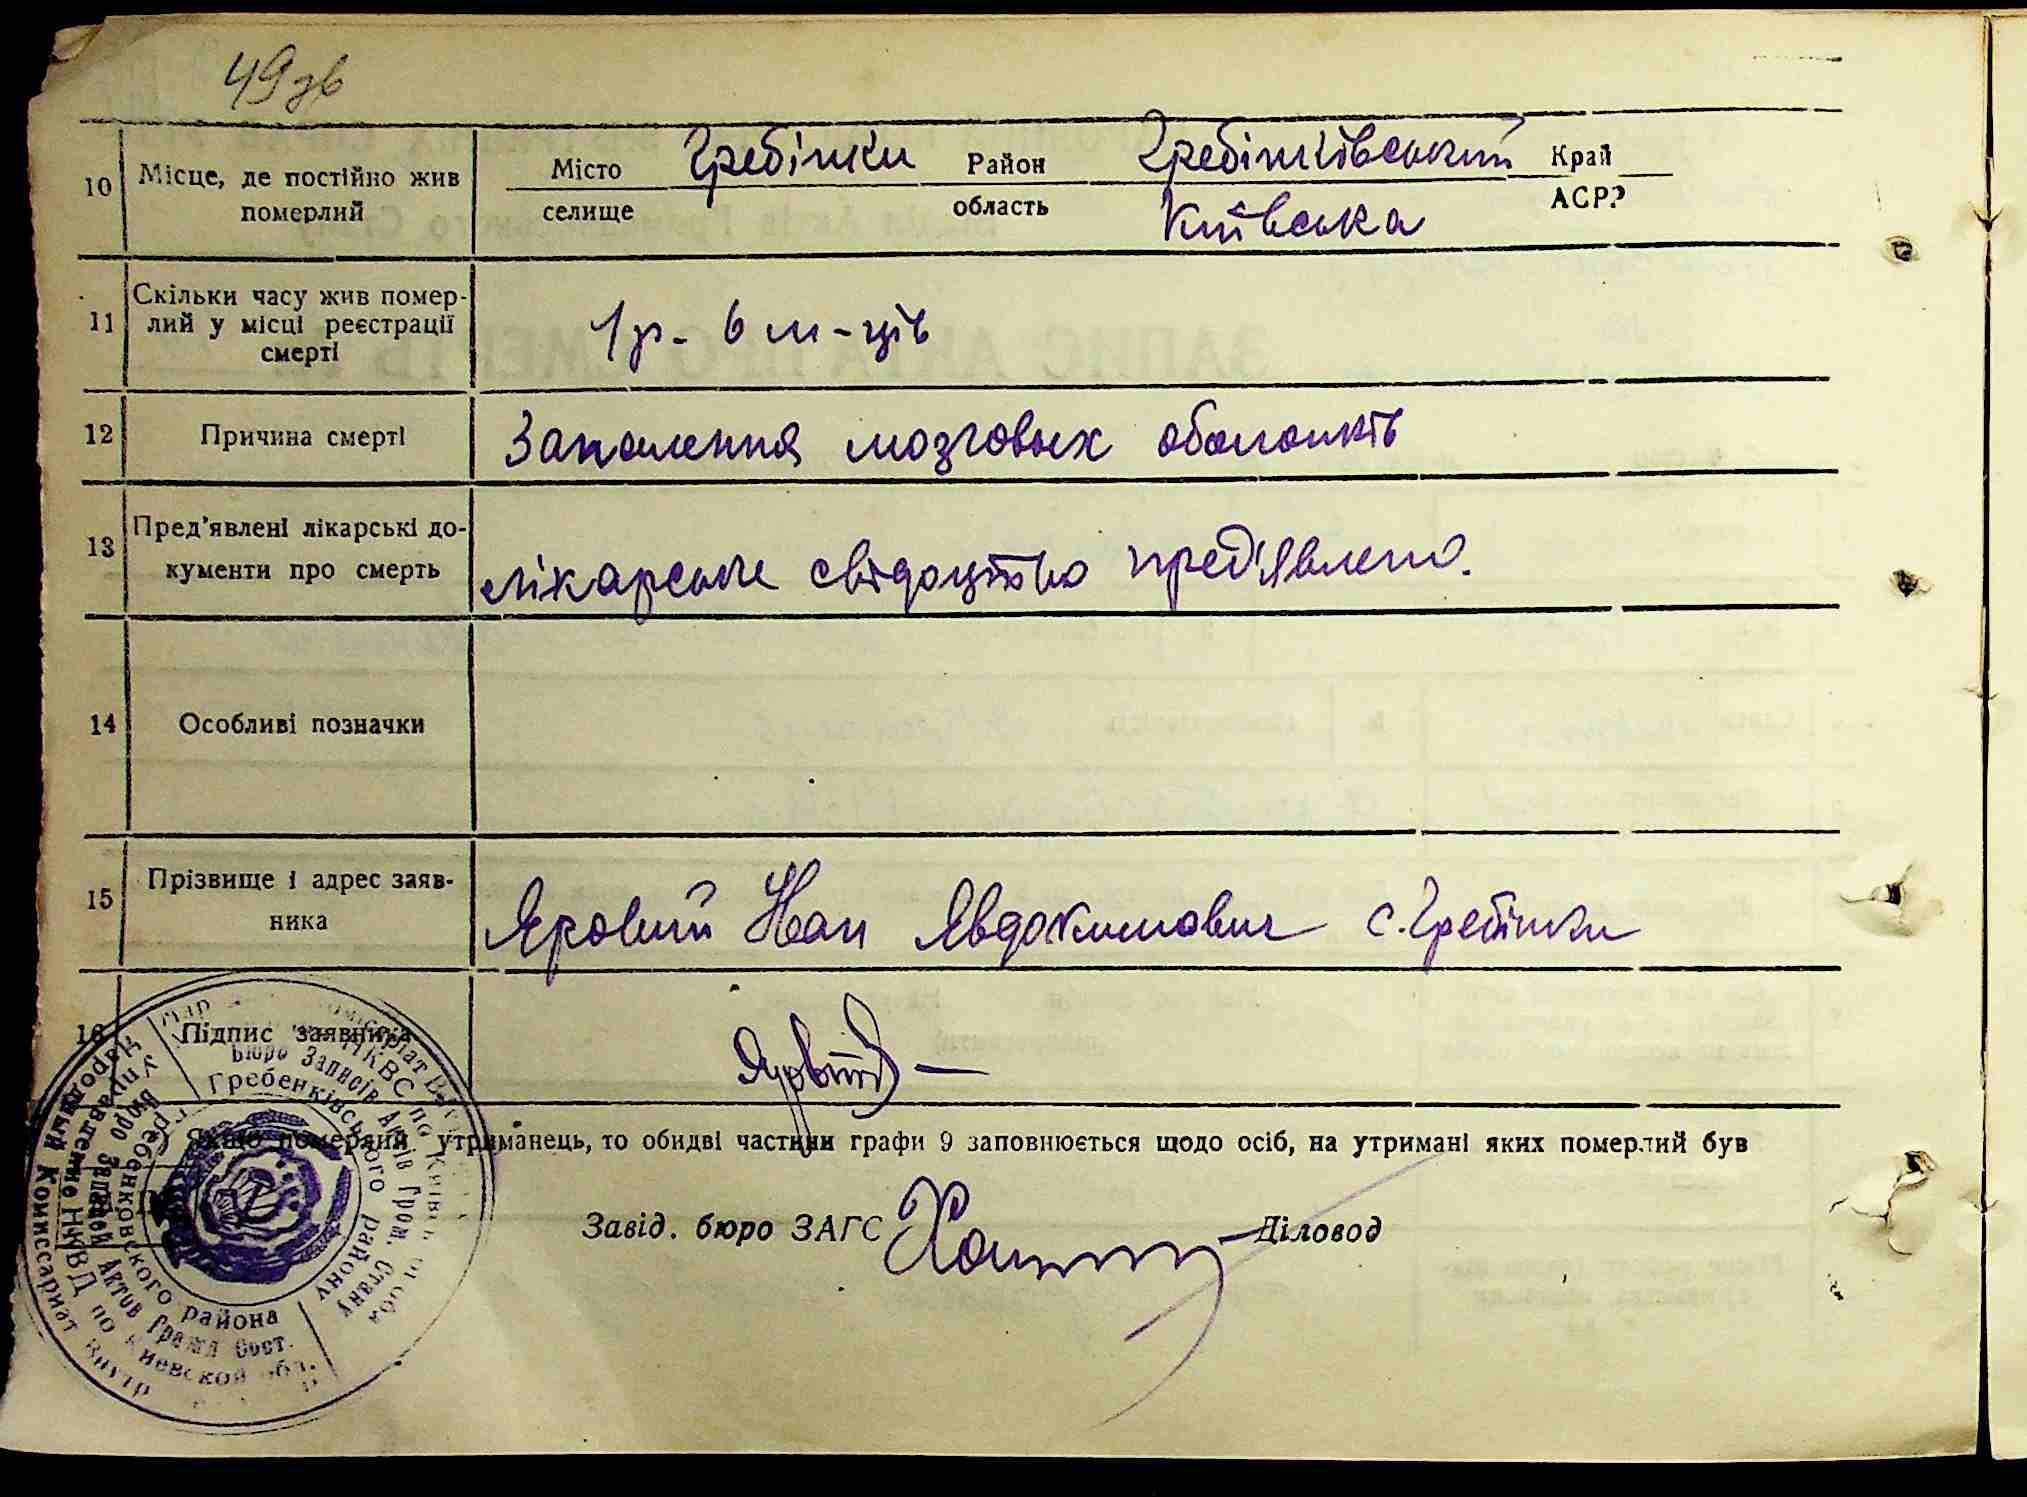 49 зв
10 Місце, де постійно жив померлий Місто селище Гребінки Район область Гребінківський Київська Край АСРР
11 Скільки часу жив помер-
лий у місці реєстрації
смерті
1 р. 6 м-ців
12 Причина смерті Запалення мозгових оболонків
13 Пред'явлені лікарські до-
кументи про смерть
лікарське свідоцтво пред'явлено.
14 Особливі позначки
15 Прізвище і адрес заяв-
ника
Яровий Іван Явдокимович с. Гребінки
16 Підпис заявника
Яровий
Якщо померлий утриманець, то обидві частини графи 9 заповнюється щодо осіб, на утримані яких померлий був
Завід. бюро ЗАГС
Діловод
НКВС по Київськ обл
Бюро Записів Актів Гром. Стану
Гребенківського району
Народный Комиссариат Внутр
Управление НКВД по Киевской обл.
Бюро Записей Актов Гражд Сост.
Гребенковского района